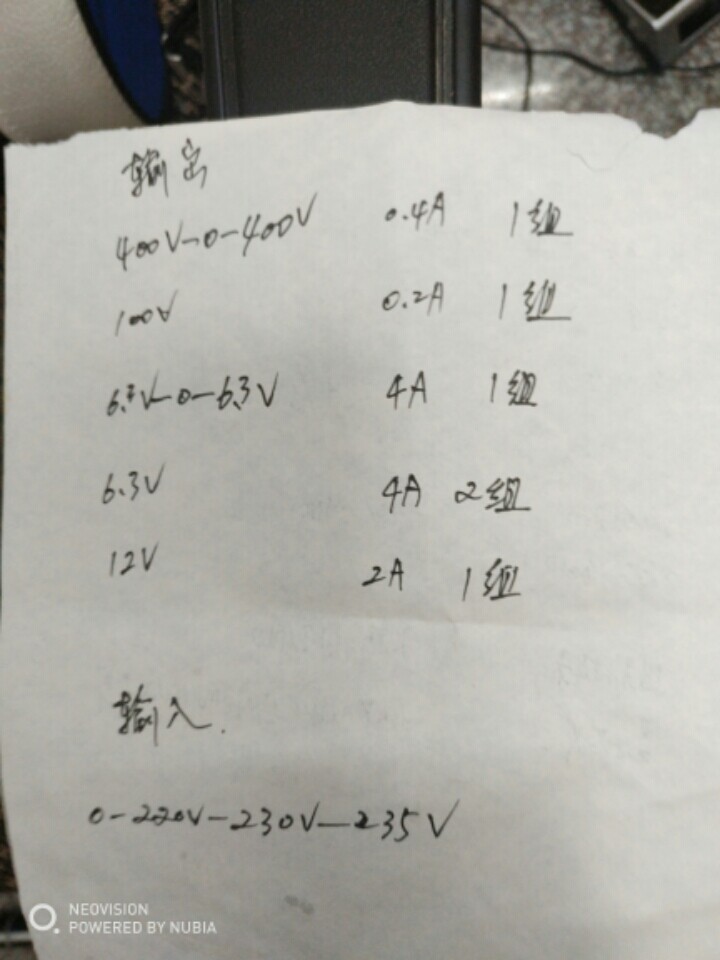 输出
400V-0-400V 0.4A 1组
100V 0.2A 1组
6.3V-0-6.3V 4A 1组
6.3V 4A 2组
12V 2A 1组
输入.
0-220V-230V-235V
NEOVISION
POWERED BY NUBIA